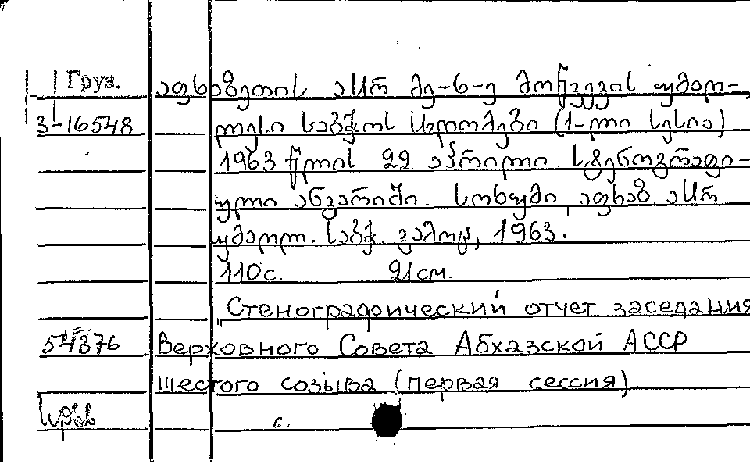 Груз. აფხაზეთის ასსრ მე-6-ე მოწვევის უმაღ-
3-16548 ლესი საბჭოს სხდომები (1-ლი სესია)
1963 წლის 22 აპრილი სტენოგრაფი-
ული ანგარიში. სოხუმი, აფხაზ ასსრ
უმაღლ. საბჭ. გამოც, 1963.
110с. 21см.
Стенографический отчет заседания
54376 Верховного Совета Абхазской АССР
шестого созыва (первая сессия)
с.